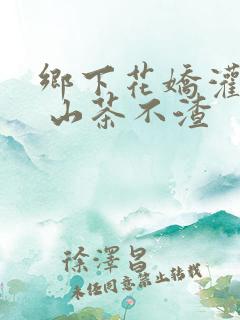 鄉下花嬌灌
山茶不渣
徐澤昌
未經同意禁止轉載